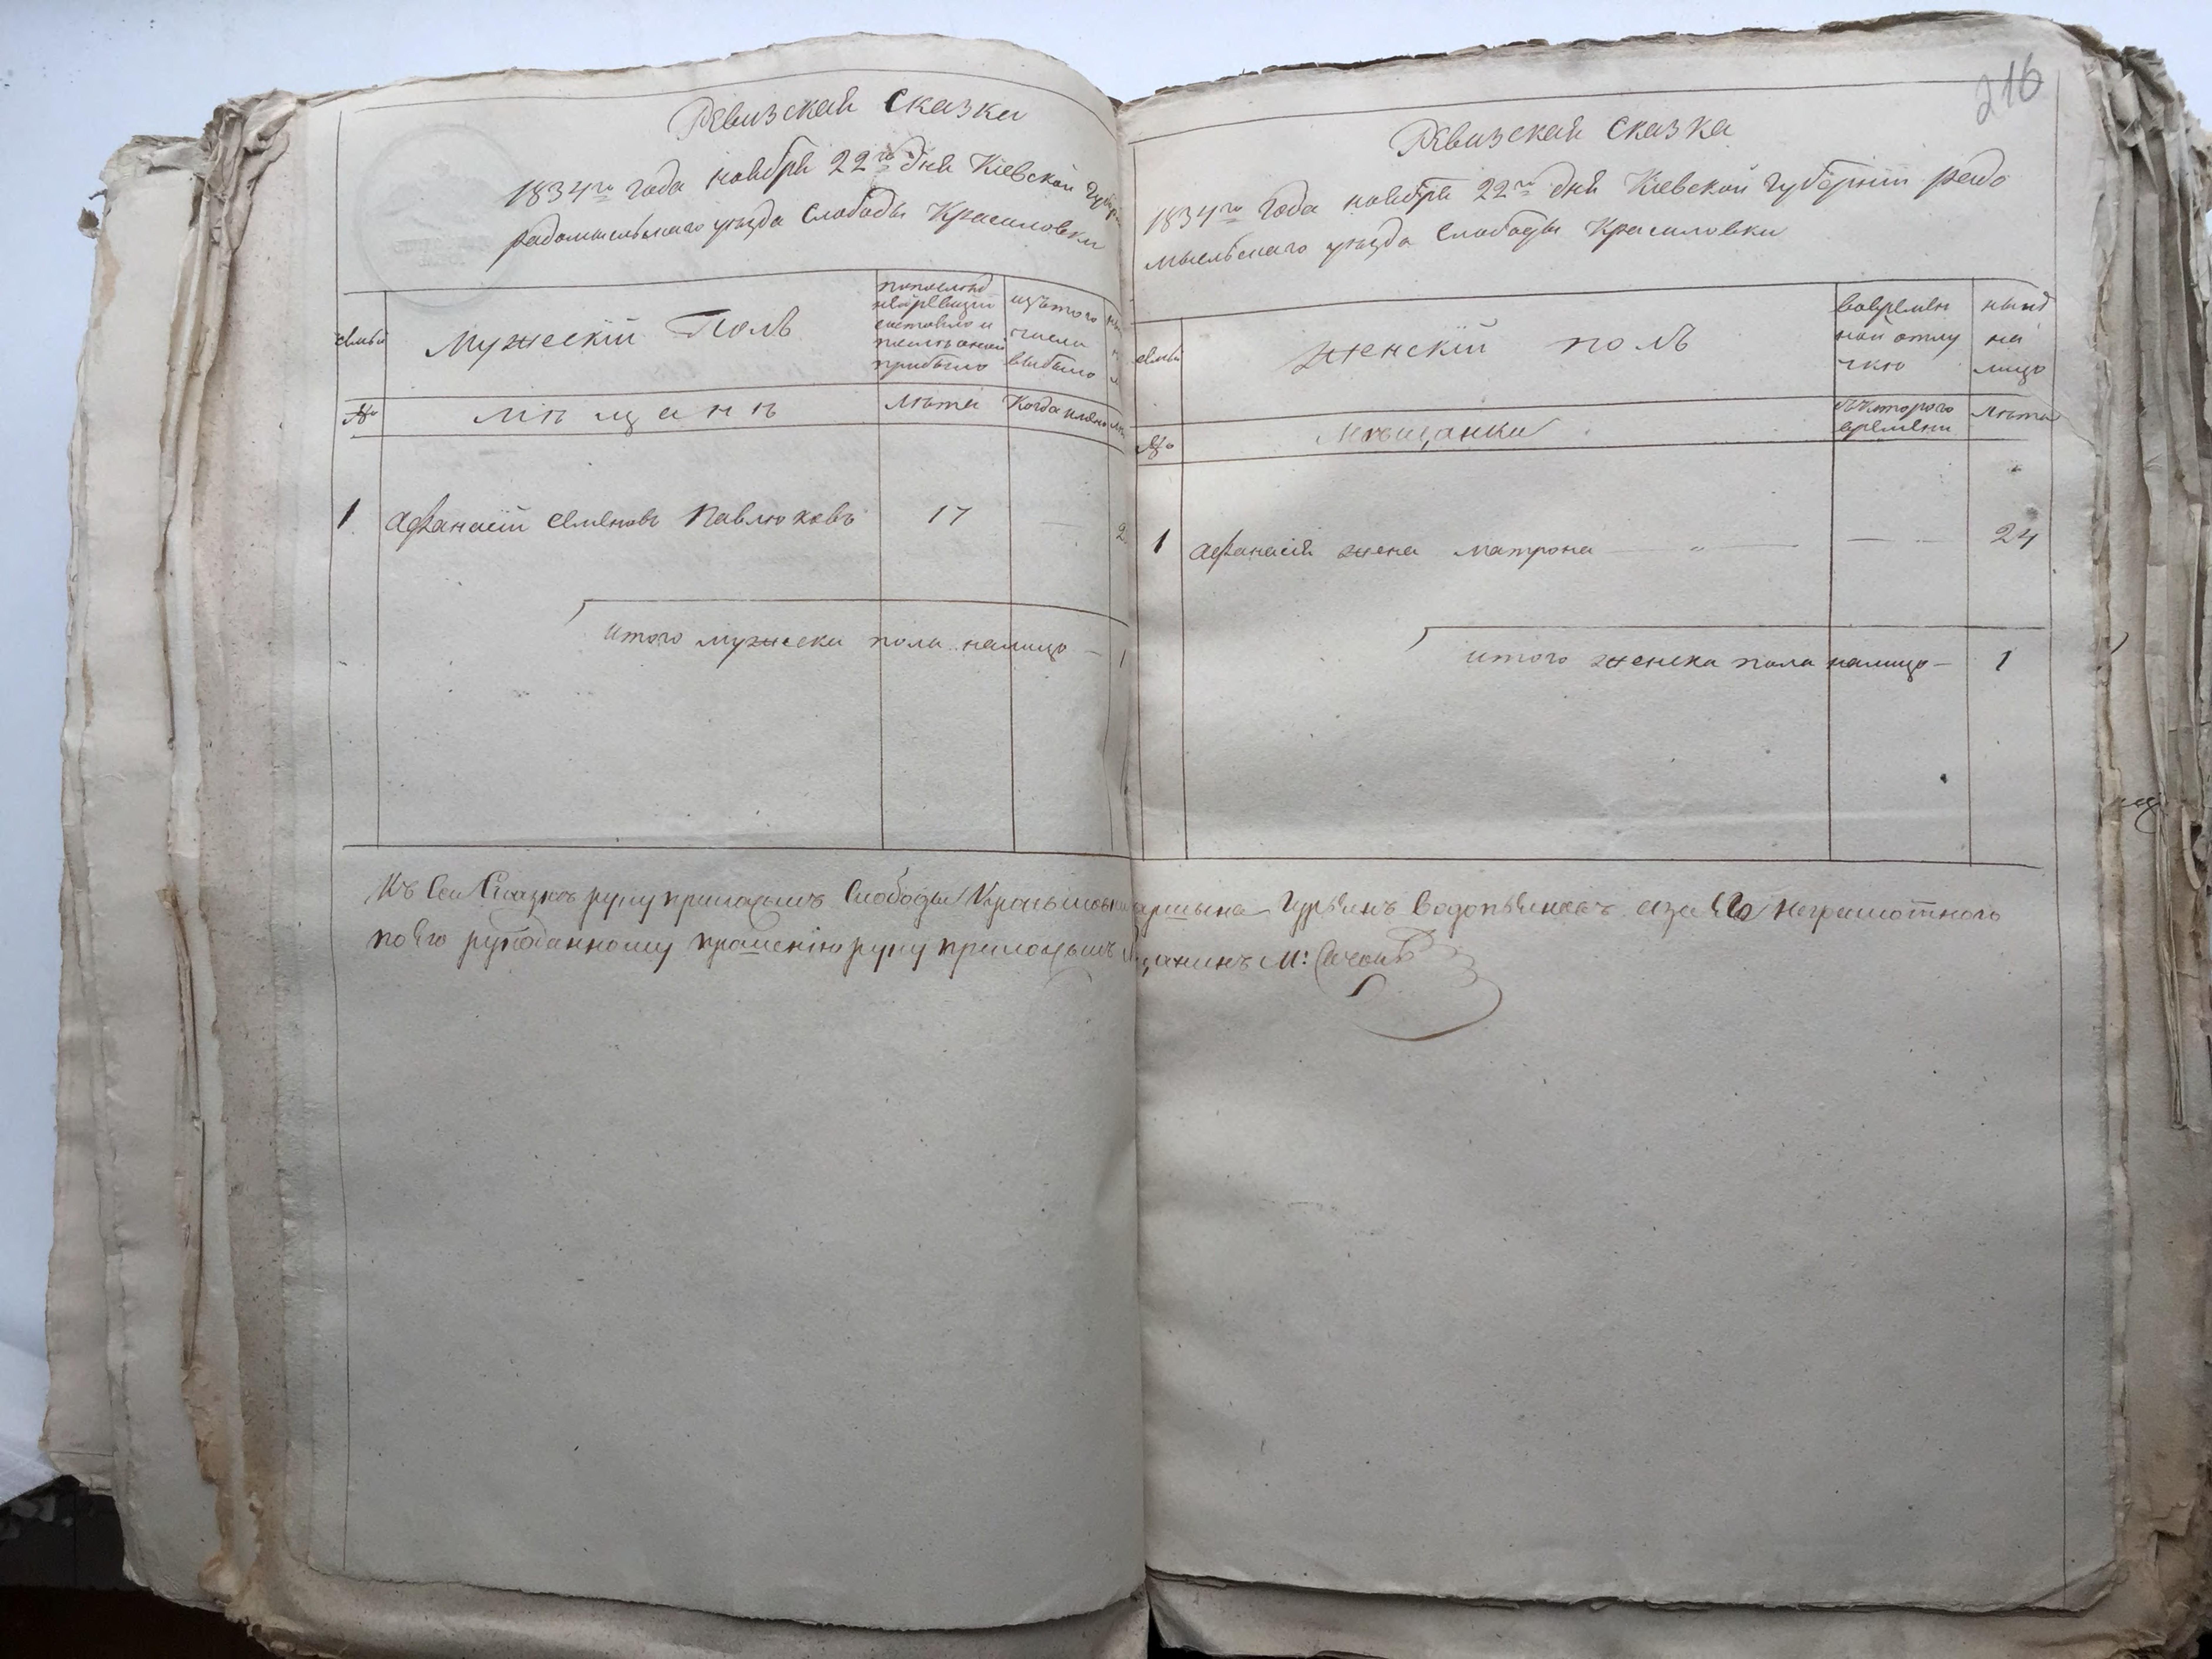 Ревизская Сказка
1834го года ноября 22го дня Киевской
радомысльскаго уезда Слободы Красиловки
семьи
Мужескiй Полъ
по последней ревизiи состояло и после оной прибыло
изъ того числа выбыло
№
мѣщанѣ
лѣта
Когда имянно
1
Афанасiй Семеновъ Павлюковъ
17
итого мужеска пола налицо — 1
216
Ревизская Сказка
1834го года ноября 22го дня Кiевской губернiи радо
мысльскаго уезда Слободы Красиловки
семьи
женскiй полъ
во времен
ной отлу
чкю
ныне
на
лицо
№
Мѣщанки
съ котораго
времени
Лѣта
1
Афанасiя жена матрона — „ —
— —
24
итого женска пола налицо —
1
Къ Сей Сказке руку приложилъ Слободы Гурьянъ Водопьяновъ а за его неграмотного
по его рукоданному прошенiю руку приложилъ М: